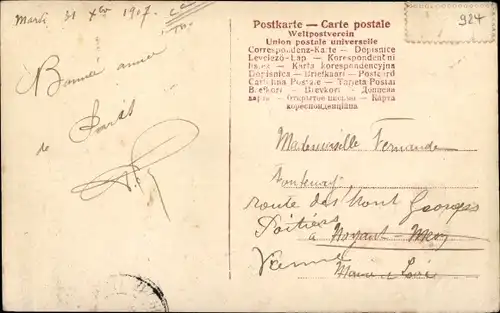 Mardi 31 Xbre 1907
Bonne année
de
Postkarte — Carte postale
Weltpostverein
Union postale universelle
Correspondenz-Karte — Dopisnice
Levelező-Lap — Korespondent
Karta korespondencyjna
Dopisnica — Briefkaart — Postcard
Cartolina Postale — Tarjeta Postal
Brefkort — Brevkort — Дописна
карта — Открытое письмо — Карта
кореспонденційна
924
Mademoiselle Fernande
Fontenay
route des Mont Georges
Poitiers
à Noyant-Mery
Vienne
Maine et Loire